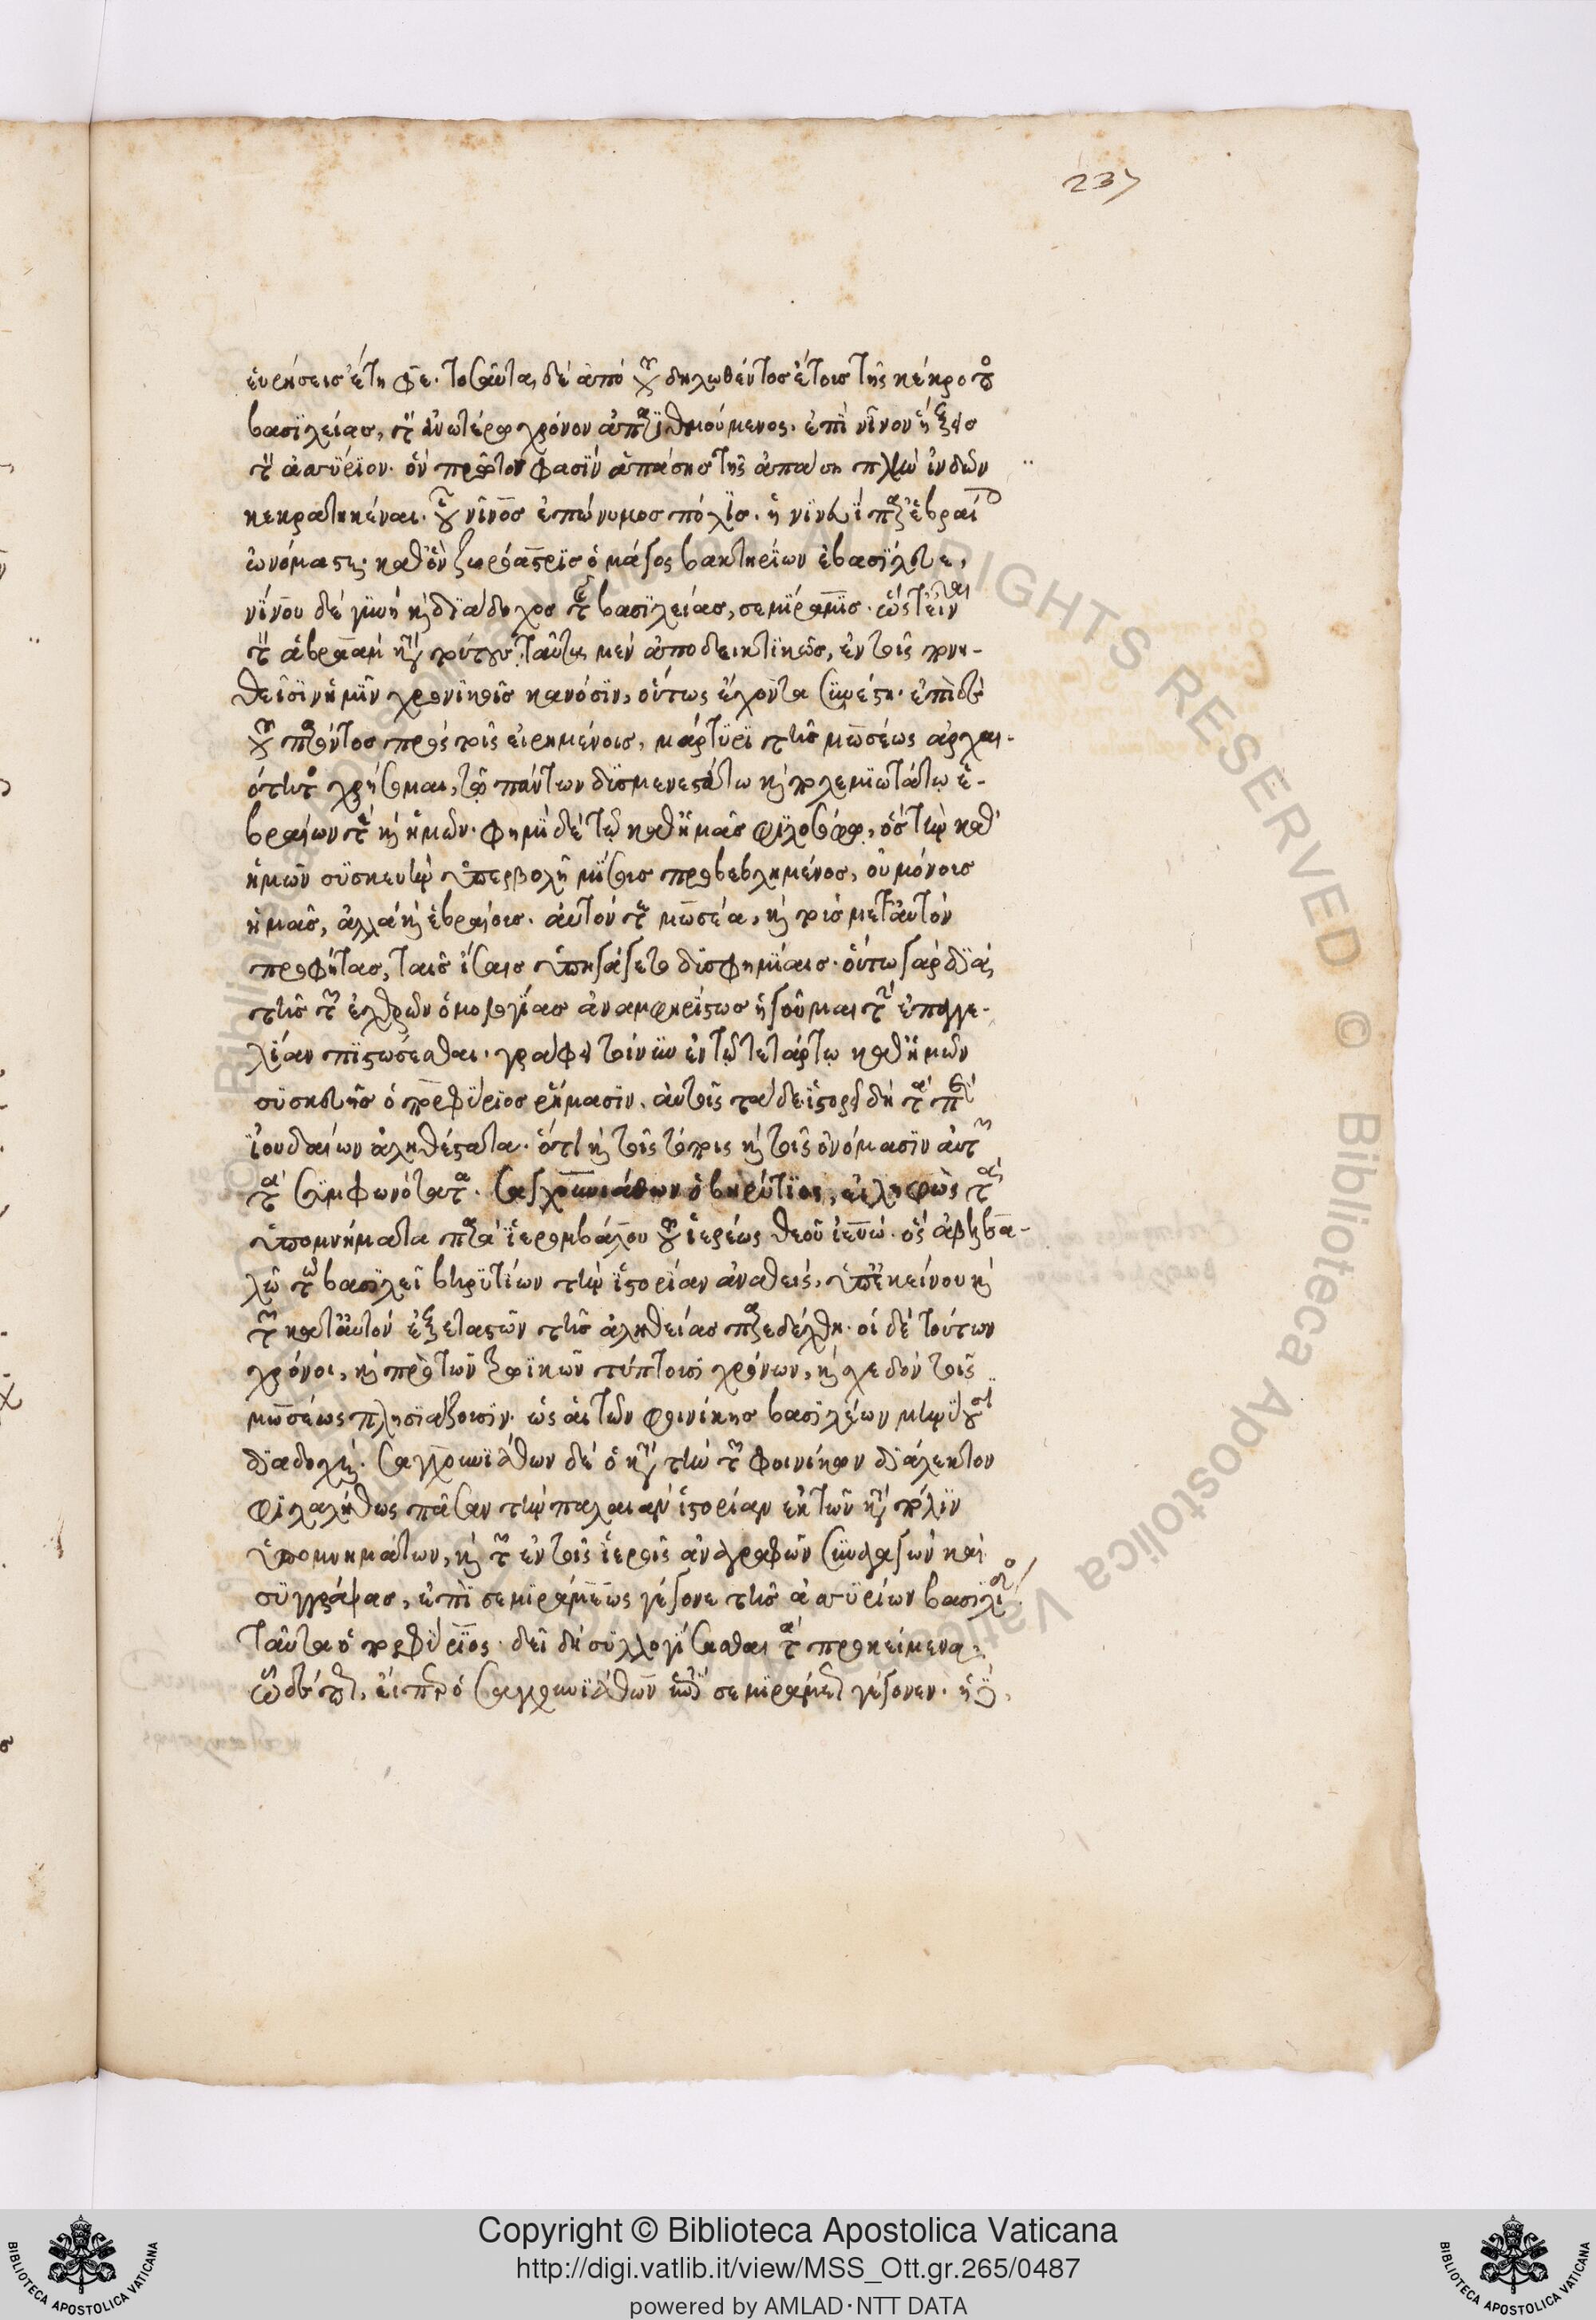 237
εὑρήσεις ἔτη φε. τοσαῦτα δὲ ἀπὸ τοῦ δηλωθέντος ἔτους τῆς κέκροπος
βασιλείας, τὸν ἀνωτέρω χρόνον ἀπαριθμούμενος. ἐπὶ νῖνον ἥξεις
τὸν ἀσσύριον. ὃν πρῶτον φασὶν ἁπάσης τῆς ἀσίας πλὴν ἰνδῶν
κεκρατηκέναι. οὗ νῖνος ἐπώνυμος πόλις. ἡ νινευὶ παρ' ἑβραίοις
ὠνόμασται. καθ' ὃν ζωροάστρις ὁ μάγος βακτηρίων ἐβασίλευσε.
νίνου δὲ γυνὴ καὶ διάδοχος τῆς βασιλείας, σεμίραμις. ὥστ' εἶναι
τὸν ἀβραὰμ κατὰ τούτους. ταῦτα μὲν ἀποδεικτικῶς, ἐν τοῖς πονη-
θεῖσιν ἡμῖν χρονικοῖς κανόσιν, οὕτως ἔχοντα συνέστη. ἐπὶ δὲ
τοῦ παρόντος πρὸς τοῖς εἰρημένοις, μάρτυρι τῆς μωσέως ἀρχαι-
ότητος χρήσομαι, τῷ πάντων δυσμενεστάτω καὶ πολεμιωτάτω ἑ-
βραίων τε καὶ ἡμῶν. φημὶ δὲ τῷ καθ' ἡμᾶς φιλοσόφῳ, ὃς τὴν καθ'
ἡμῶν συσκευὴν ὑπερβολῇ μίσους προβεβλημένος, οὐ μόνους
ἡμᾶς, ἀλλὰ καὶ ἑβραίους. αὐτόν τε μωσέα, καὶ τοὺς μετ' αὐτὸν
προφήτας, ταῖς ἴσαις ὑπηγάγετο δυσφημίαις. οὕτω γὰρ διὰ
τῆς τῶν ἐχθρῶν ὁμολογίας ἀναμφηρίστως ἡγοῦμαι τὴν ἐπαγγε-
λίαν πιστώσεσθαι. γράφει τοίνυν ἐν τῷ τετάρτῳ καθ' ἡμῶν
συσκευῆς ὁ πορφύριος ῥήμασιν. αὐτοῖς τάδε ἱστορεῖ δὴ τὰ περὶ
ἰουδαίων ἀληθέστατα. ὅτι καὶ τοῖς τόποις καὶ τοῖς ὀνόμασιν αὐτῶν
τὰ συμφωνότατα. σαγχουνιάθων ὁ βηρύτιος, εἰληφὼς τὰ
ὑπομνήματα παρὰ ἱερομβάλου τοῦ ἱερέως θεοῦ ἰευώ. ὃς ἀβηβα-
λῶ τῷ βασιλεῖ βηρυτίων τὴν ἱστορίαν ἀναθεὶς, ὑπ' ἐκείνου καὶ
τῶν κατ' αὐτὸν ἐξεταστῶν τῆς ἀληθείας παρεδέχθη. οἱ δὲ τούτων
χρόνοι, καὶ πρὸ τῶν τρωικῶν πίπτουσι χρόνων, καὶ σχεδὸν τοῖς
μωσέως πλησιάζουσιν. ὡς αἱ τῶν φοινίκης βασιλέων μηνύουσι
διαδοχαί. σαγχουνιάθων δὲ ὁ κατὰ τὴν τῶν φοινίκων διάλεκτον
φιλαλήθως πᾶσαν τὴν παλαιὰν ἱστορίαν ἐκ τῶν κατὰ πόλιν
ὑπομνημάτων, καὶ τῶν ἐν τοῖς ἱεροῖς ἀναγραφῶν συναγαγὼν καὶ
συγγράψας, ἐπὶ σεμιράμεως γέγονε τῆς ἀσσυρίων βασιλίδος.
ταῦτα ὁ πορφύριος. δεῖ δὴ συλλογίσασθαι τὰ προκείμενα.